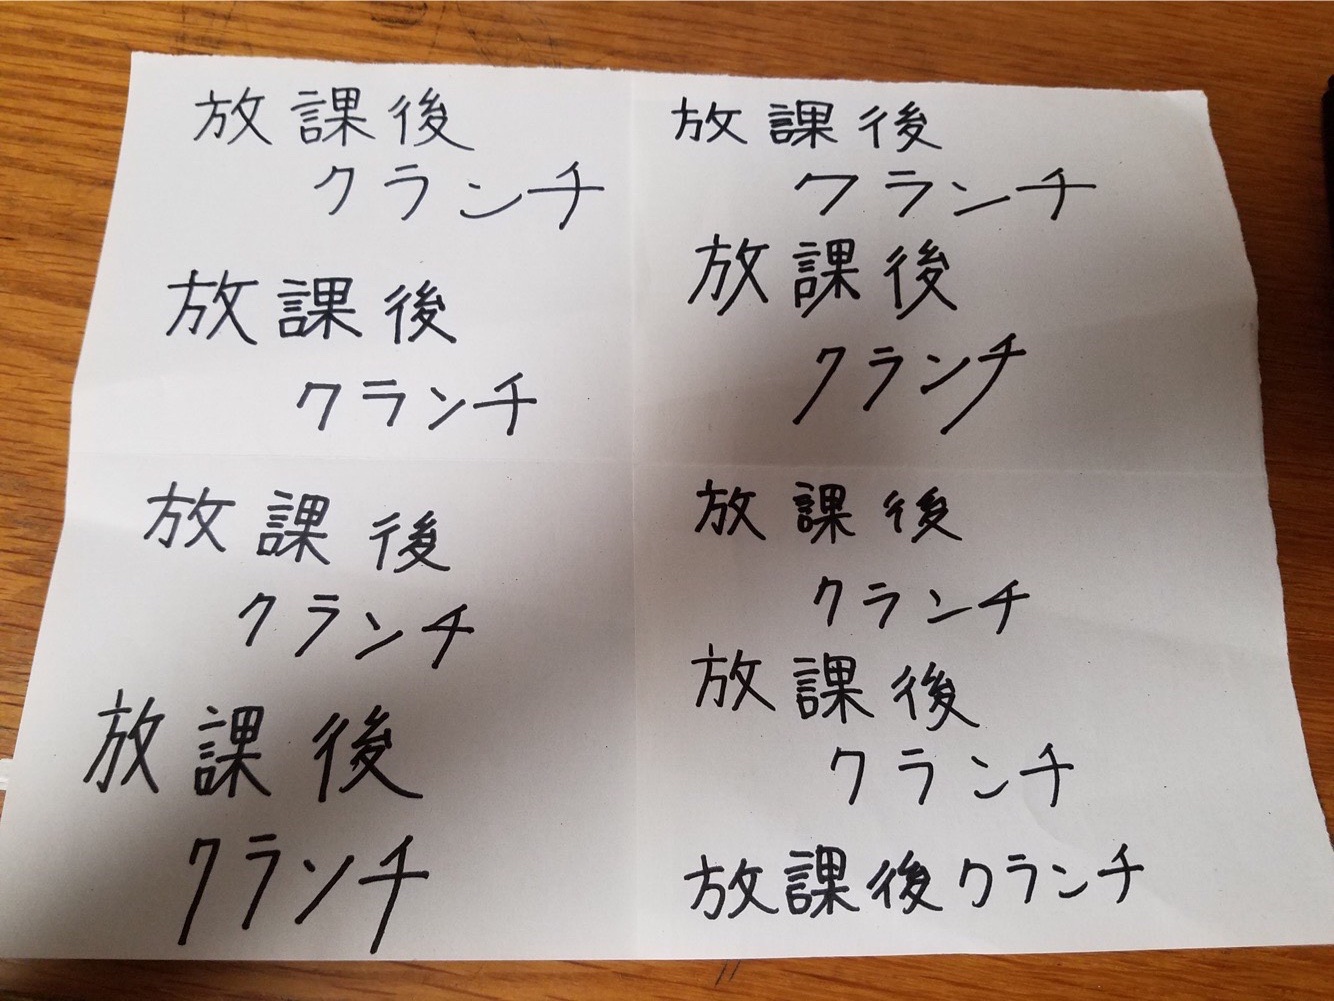 放課後
クランチ
放課後
クランチ
放課後
クランチ
放課後
クランチ
放課後
クランチ
放課後
クランチ
放課後
クランチ
放課後
クランチ
放課後クランチ